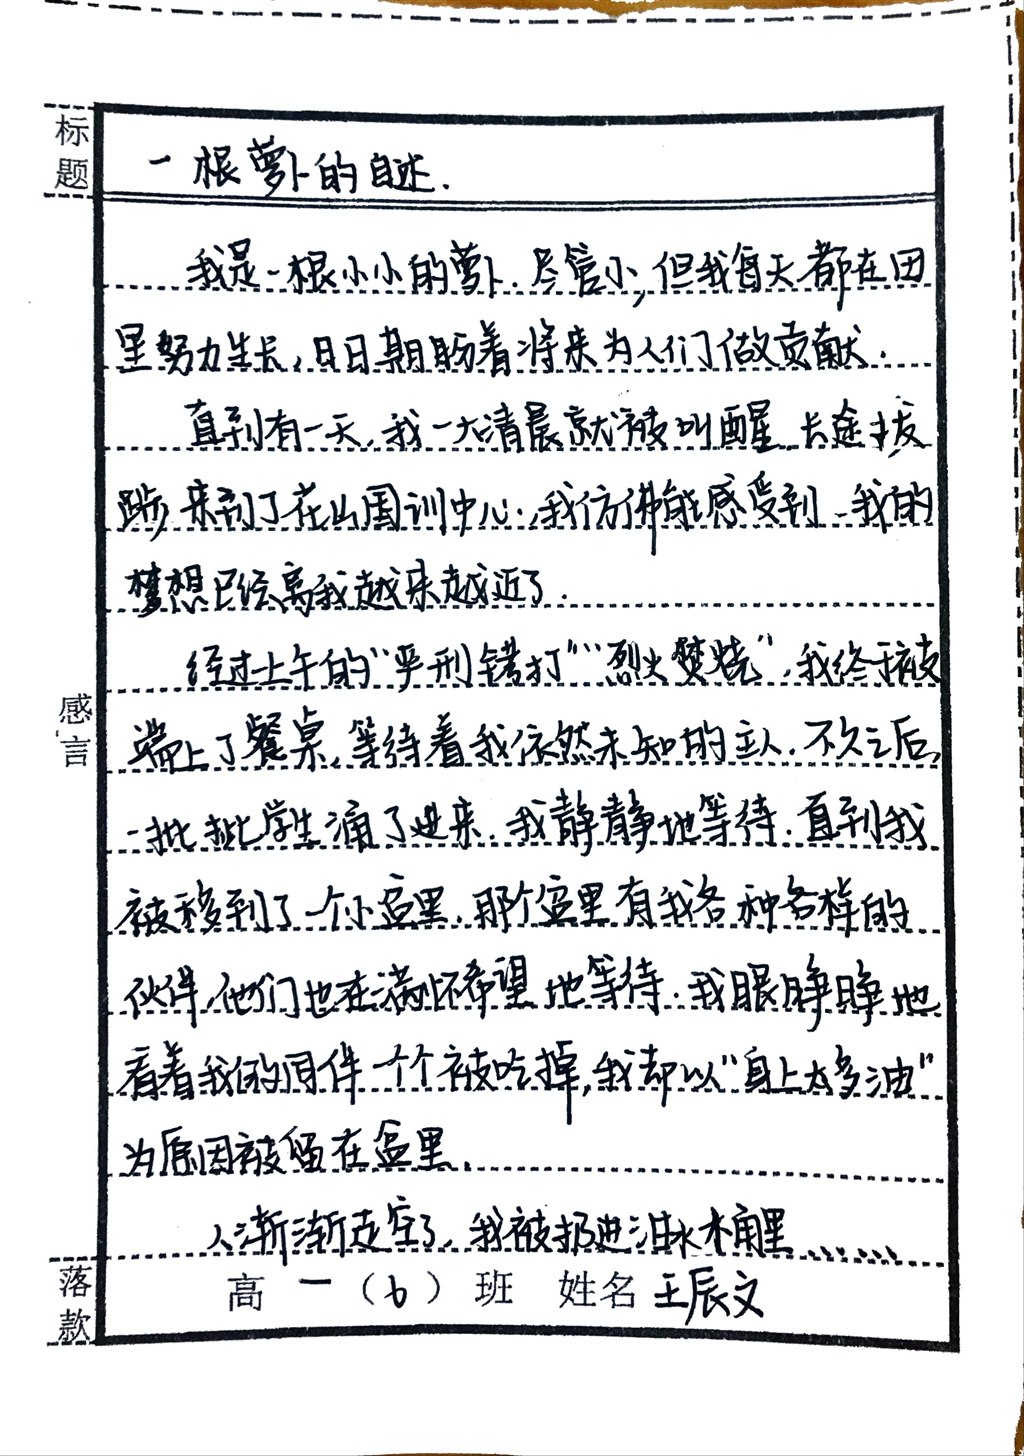 标题
一根萝卜的自述.
我是一根小小的萝卜.尽管小,但我每天都在田
里努力生长,日日期盼着将来为人们做贡献.
直到有一天,我一大清晨就被叫醒 长途拔
涉 来到了花山国训中心.,我仿佛能感受到 我的
梦想已经离我越来越近了.
经过上午的“严刑错打”“烈火焚烧”,我终于被
感言
端上了餐桌,等待着我依然未知的主人.不久之后,
一批批学生涌了进来.我静静地等待.直到我
被移到了一个小盒里.那个盒里有我各种各样的
伙伴,他们也在满怀希望地等待.我眼睁睁地
看着我的同伴一个个被吃掉,我却以“身上太多油”
为原因被留在盒里.
人渐渐走空了,我被扔进泔水木桶里......
落款
高一(6)班 姓名 王辰文